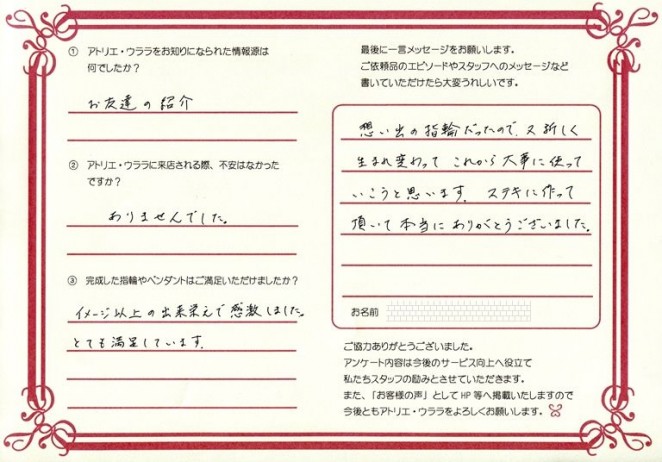 ① アトリエ・ウララをお知りになられた情報源は
何でしたか？
お友達の紹介
② アトリエ・ウララに来店される際、不安はなかった
ですか？
ありませんでした。
③ 完成した指輪やペンダントはご満足いただけましたか？
イメージ以上の出来栄えで感激しました。
とても満足しています。
最後に一言メッセージをお願いします。
ご依頼品のエピソードやスタッフへのメッセージなど
書いていただけたら大変うれしいです。
想い出の指輪だったので、又新しく
生まれ変わって これから大事に使って
いこうと思います。 ステキに作って
頂いて本当にありがとうございました。
お名前
ご協力ありがとうございました。
アンケート内容は今後のサービス向上へ役立て
私たちスタッフの励みとさせていただきます。
また、「お客様の声」としてHP等へ掲載いたしますので
今後ともアトリエ・ウララをよろしくお願いします。